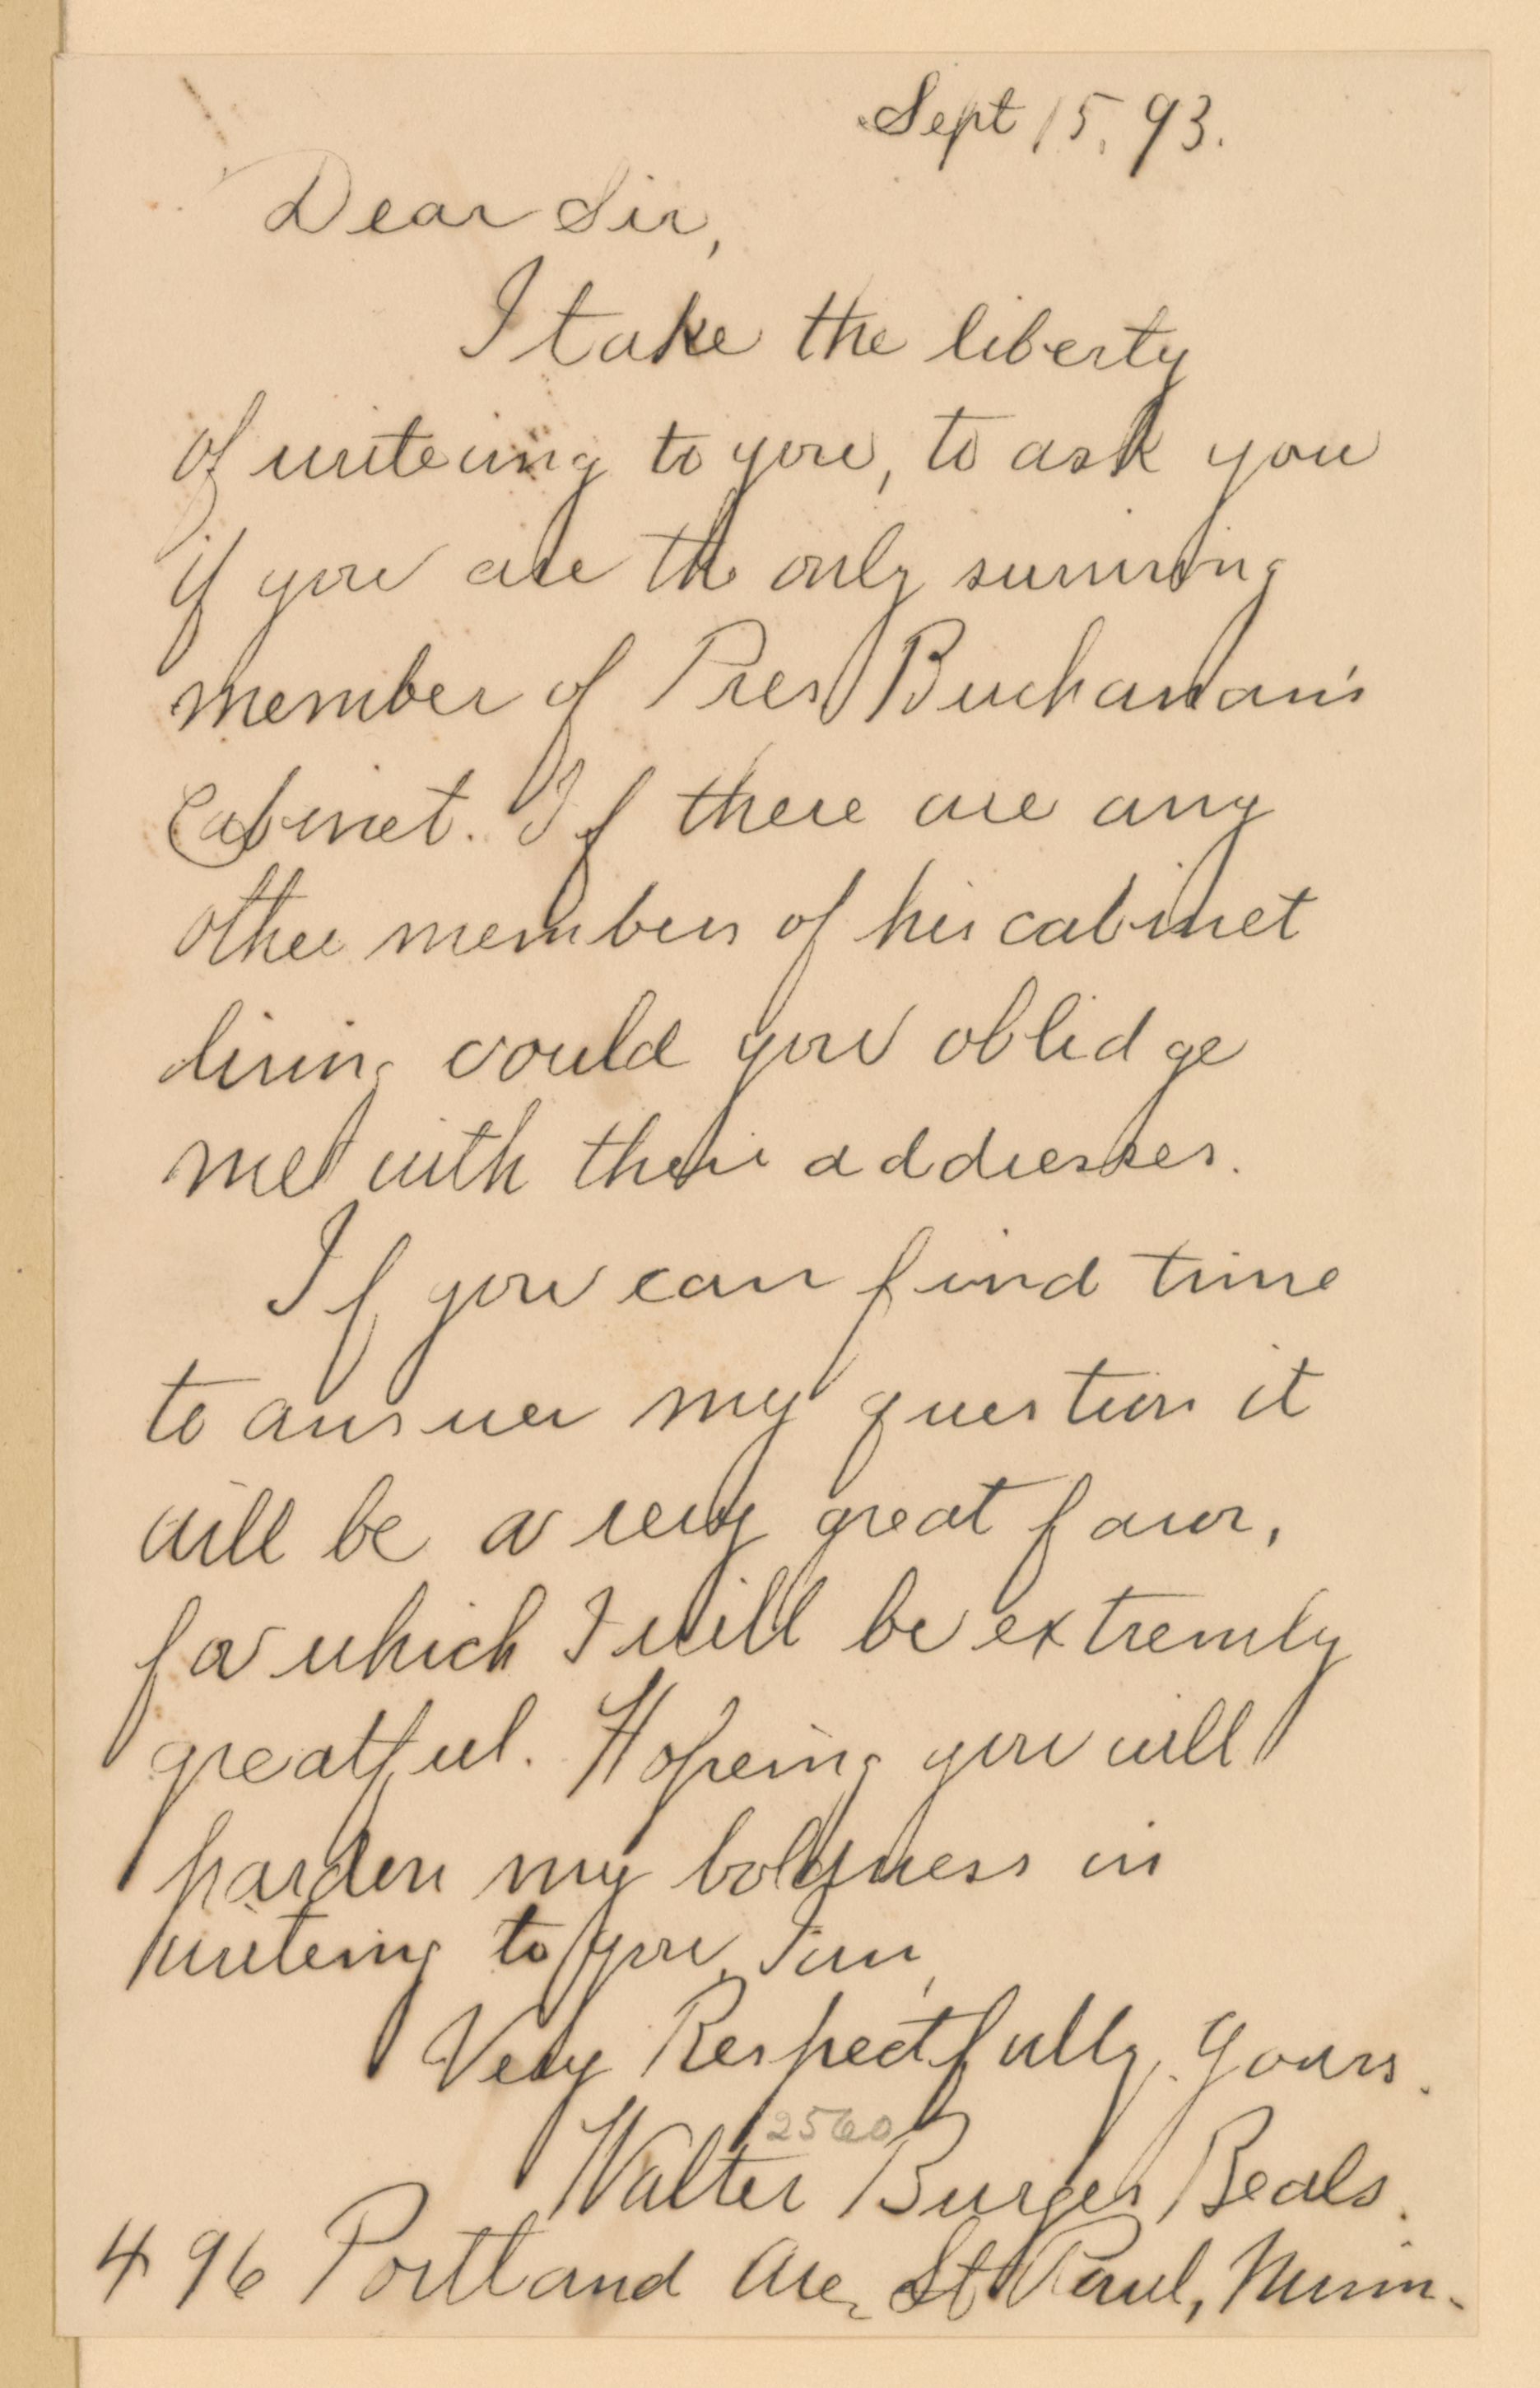 Sept 15, 93.
Dear Sir,
I take the liberty
of writeing to you, to ask you
if you are the only surviving
member of Pres Buchanan's
Cabinet. If there are any
other members of his cabinet
living could you oblidge
me with their addresses.
If you can find time
to answer my question it
will be a very great favor,
for which I will be extremly
greatful. Hopeing you will
pardon my boldness in
writeing to you, I am,
Very Respectfully Yours.
2560
Walter Burges Beals.
496 Portland Ave, St Paul, Minn.